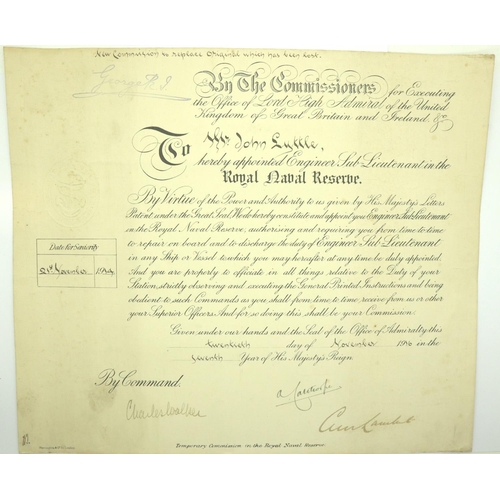 New Commission to replace Original which has been lost.
George R. I.
By The Commissioners for Executing
the Office of Lord High Admiral of the United
Kingdom of Great Britain and Ireland &c.
To Mr. John Lyttle,
hereby appointed Engineer Sub-Lieutenant in the
Royal Naval Reserve.
By Virtue of the Power and Authority to us given by His Majesty's Letters
Patent under the Great Seal We do hereby constitute and appoint you Engineer Sub-Lieutenant
in the Royal Naval Reserve, authorising and requiring you from time to time
to repair on board and to discharge the duty of Engineer Sub-Lieutenant
in any Ship or Vessel to which you may hereafter at any time be duly appointed.
And you are properly to officiate in all things relative to the Duty of your
Station, strictly observing and executing the General Printed Instructions and being
obedient to such Commands as you shall from time to time, receive from us or other
your Superior Officers. And for so doing this shall be your Commission.
Date for Seniority
November
Given under our hands and the Seal of the Office of Admiralty this
twentieth day of November 1916 in the
Seventh Year of His Majesty's Reign.
By Command.
Charles Walker
Temporary Commission in the Royal Naval Reserve